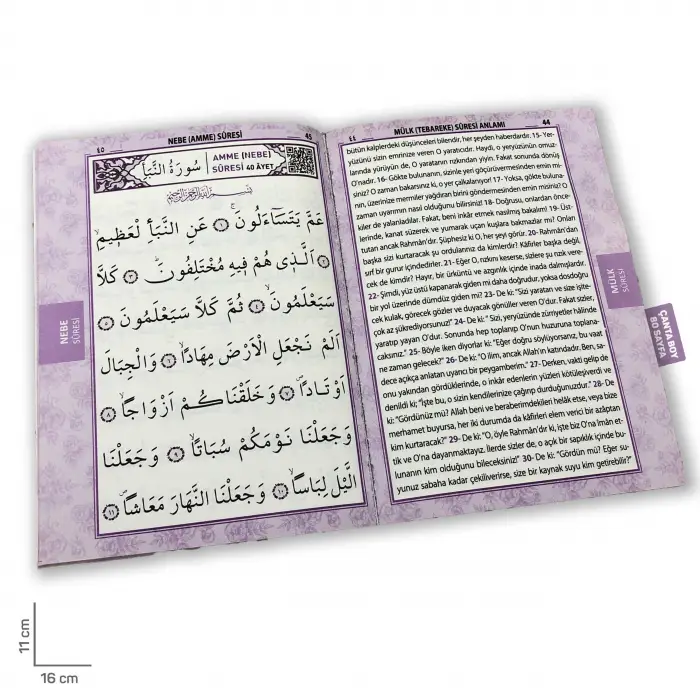 ٤٤ MÜLK (TEBAREKE) SÛRESİ ANLAMI 44
bütün kalplerdeki düşünceleri bilendir, her şeyden haberdardır. 15- Yer-
yüzünü sizin emrinize veren O yaratıcıdır. Haydi, o yeryüzünün omuz-
larında yürüyün de, O yaratanın rızkından yiyin. Fakat sonunda dönüş
O'nadır. 16- Gökte bulunanın, sizinle yeri göçürüvermesinden emin mi-
siniz? O zaman bakarsınız ki, o yer çalkalanıyor! 17- Yoksa, gökte buluna-
nın, üzerinize mermiler yağdıran birini göndermesinden emin misiniz? O
zaman uyarımın nasıl olduğunu bilirsiniz! 18- Doğrusu, onlardan önce-
kiler de yalanladılar. Fakat, beni inkâr etmek nasılmış bakalım! 19- Üst-
lerinde, kanat süzerek ve yumarak uçan kuşlara bakmazlar mı? Onları
tutan ancak Rahmân'dır. Şüphesiz ki O, her şeyi görür. 20- Rahmân'dan
başka sizi kurtaracak şu ordularınız da kimlerdir? Kâfirler başka değil,
sırf bir gurur içindedirler. 21- Eğer O, rızkını keserse, sizlere şu rızık vere-
cek de kimdir? Hayır, bir ürküntü ve azgınlık içinde inada dalmışlardır.
22- Şimdi, yüz üstü kapanarak giden mi daha doğrudur, yoksa dosdoğru
bir yol üzerinde dümdüz giden mi? 23- De ki: "Sizi yaratan ve size işite-
cek kulak, görecek gözler ve duyacak gönüller veren O'dur. Fakat sizler,
çok az şükrediyorsunuz!" 24- De ki: " Sizi, yeryüzünde zürriyetler hâlinde
yaratıp yayan O'dur. Sonunda hep toplanıp O'nun huzuruna toplana-
caksınız." 25- Böyle iken diyorlar ki: "Eğer doğru söylüyorsanız, bu vaat
ne zaman gelecek?" 26- De ki: "O ilim, ancak Allah'ın katındadır. Ben, sa-
dece açıkça anlatan uyarıcı bir peygamberim." 27- Derken, vakti gelip de
onu yakından gördüklerinde, o inkâr edenlerin yüzleri kötüleşiverdi ve
denildi ki; "İşte bu, o sizin kendilerinize çağırıp durduğunuzdur." 28- De
ki: "Gördünüz mü? Allah beni ve beraberimdekileri helâk etse, veya bize
merhamet buyursa, her iki durumda da kâfirleri elem verici bir azâptan
kim kurtaracak?" 29- De ki: "O, öyle Rahmân'dır ki, işte biz O'na îmân et-
tik ve O'na dayanmaktayız. İlerde sizler de, o açık bir sapıklık içinde bu-
lunanın kim olduğunu bileceksiniz!" 30- De ki: "Gördün mü? Eğer su-
yunuz sabaha kadar çekiliverirse, size bir kaynak suyu kim getirebilir?"
MÜLK
SÛRESİ
ÇANTA BOY
80 SAYFA
٤٥ NEBE (AMME) SÛRESİ 45
سُورَةُ النَّبَأِ
AMME (NEBE)
SÛRESİ 40 ÂYET
بِسْمِ اللّٰهِ الرَّحْمٰنِ الرَّحِيمِ
عَمَّ يَتَسَٓاءَلُونَۚ ﴿١﴾ عَنِ النَّبَأِ الْعَظ۪يمِۙ
﴿٢﴾ اَلَّذ۪ي هُمْ ف۪يهِ مُخْتَلِفُونَۜ ﴿٣﴾ كَلَّا
سَيَعْلَمُونَۙ ﴿٤﴾ ثُمَّ كَلَّا سَيَعْلَمُونَ ﴿٥﴾
اَلَمْ نَجْعَلِ الْاَرْضَ مِهَادًاۙ ﴿٦﴾ وَالْجِبَالَ
اَوْتَادًاۖ ﴿٧﴾ وَخَلَقْنَاكُمْ اَزْوَاجًاۙ ﴿٨﴾
وَجَعَلْنَا نَوْمَكُمْ سُبَاتًاۙ ﴿٩﴾ وَجَعَلْنَا
الَّيْلَ لِبَاسًاۙ ﴿١٠﴾ وَجَعَلْنَا النَّهَارَ مَعَاشًاۖ ﴿١١﴾
NEBE
SÛRESİ
11 cm
16 cm